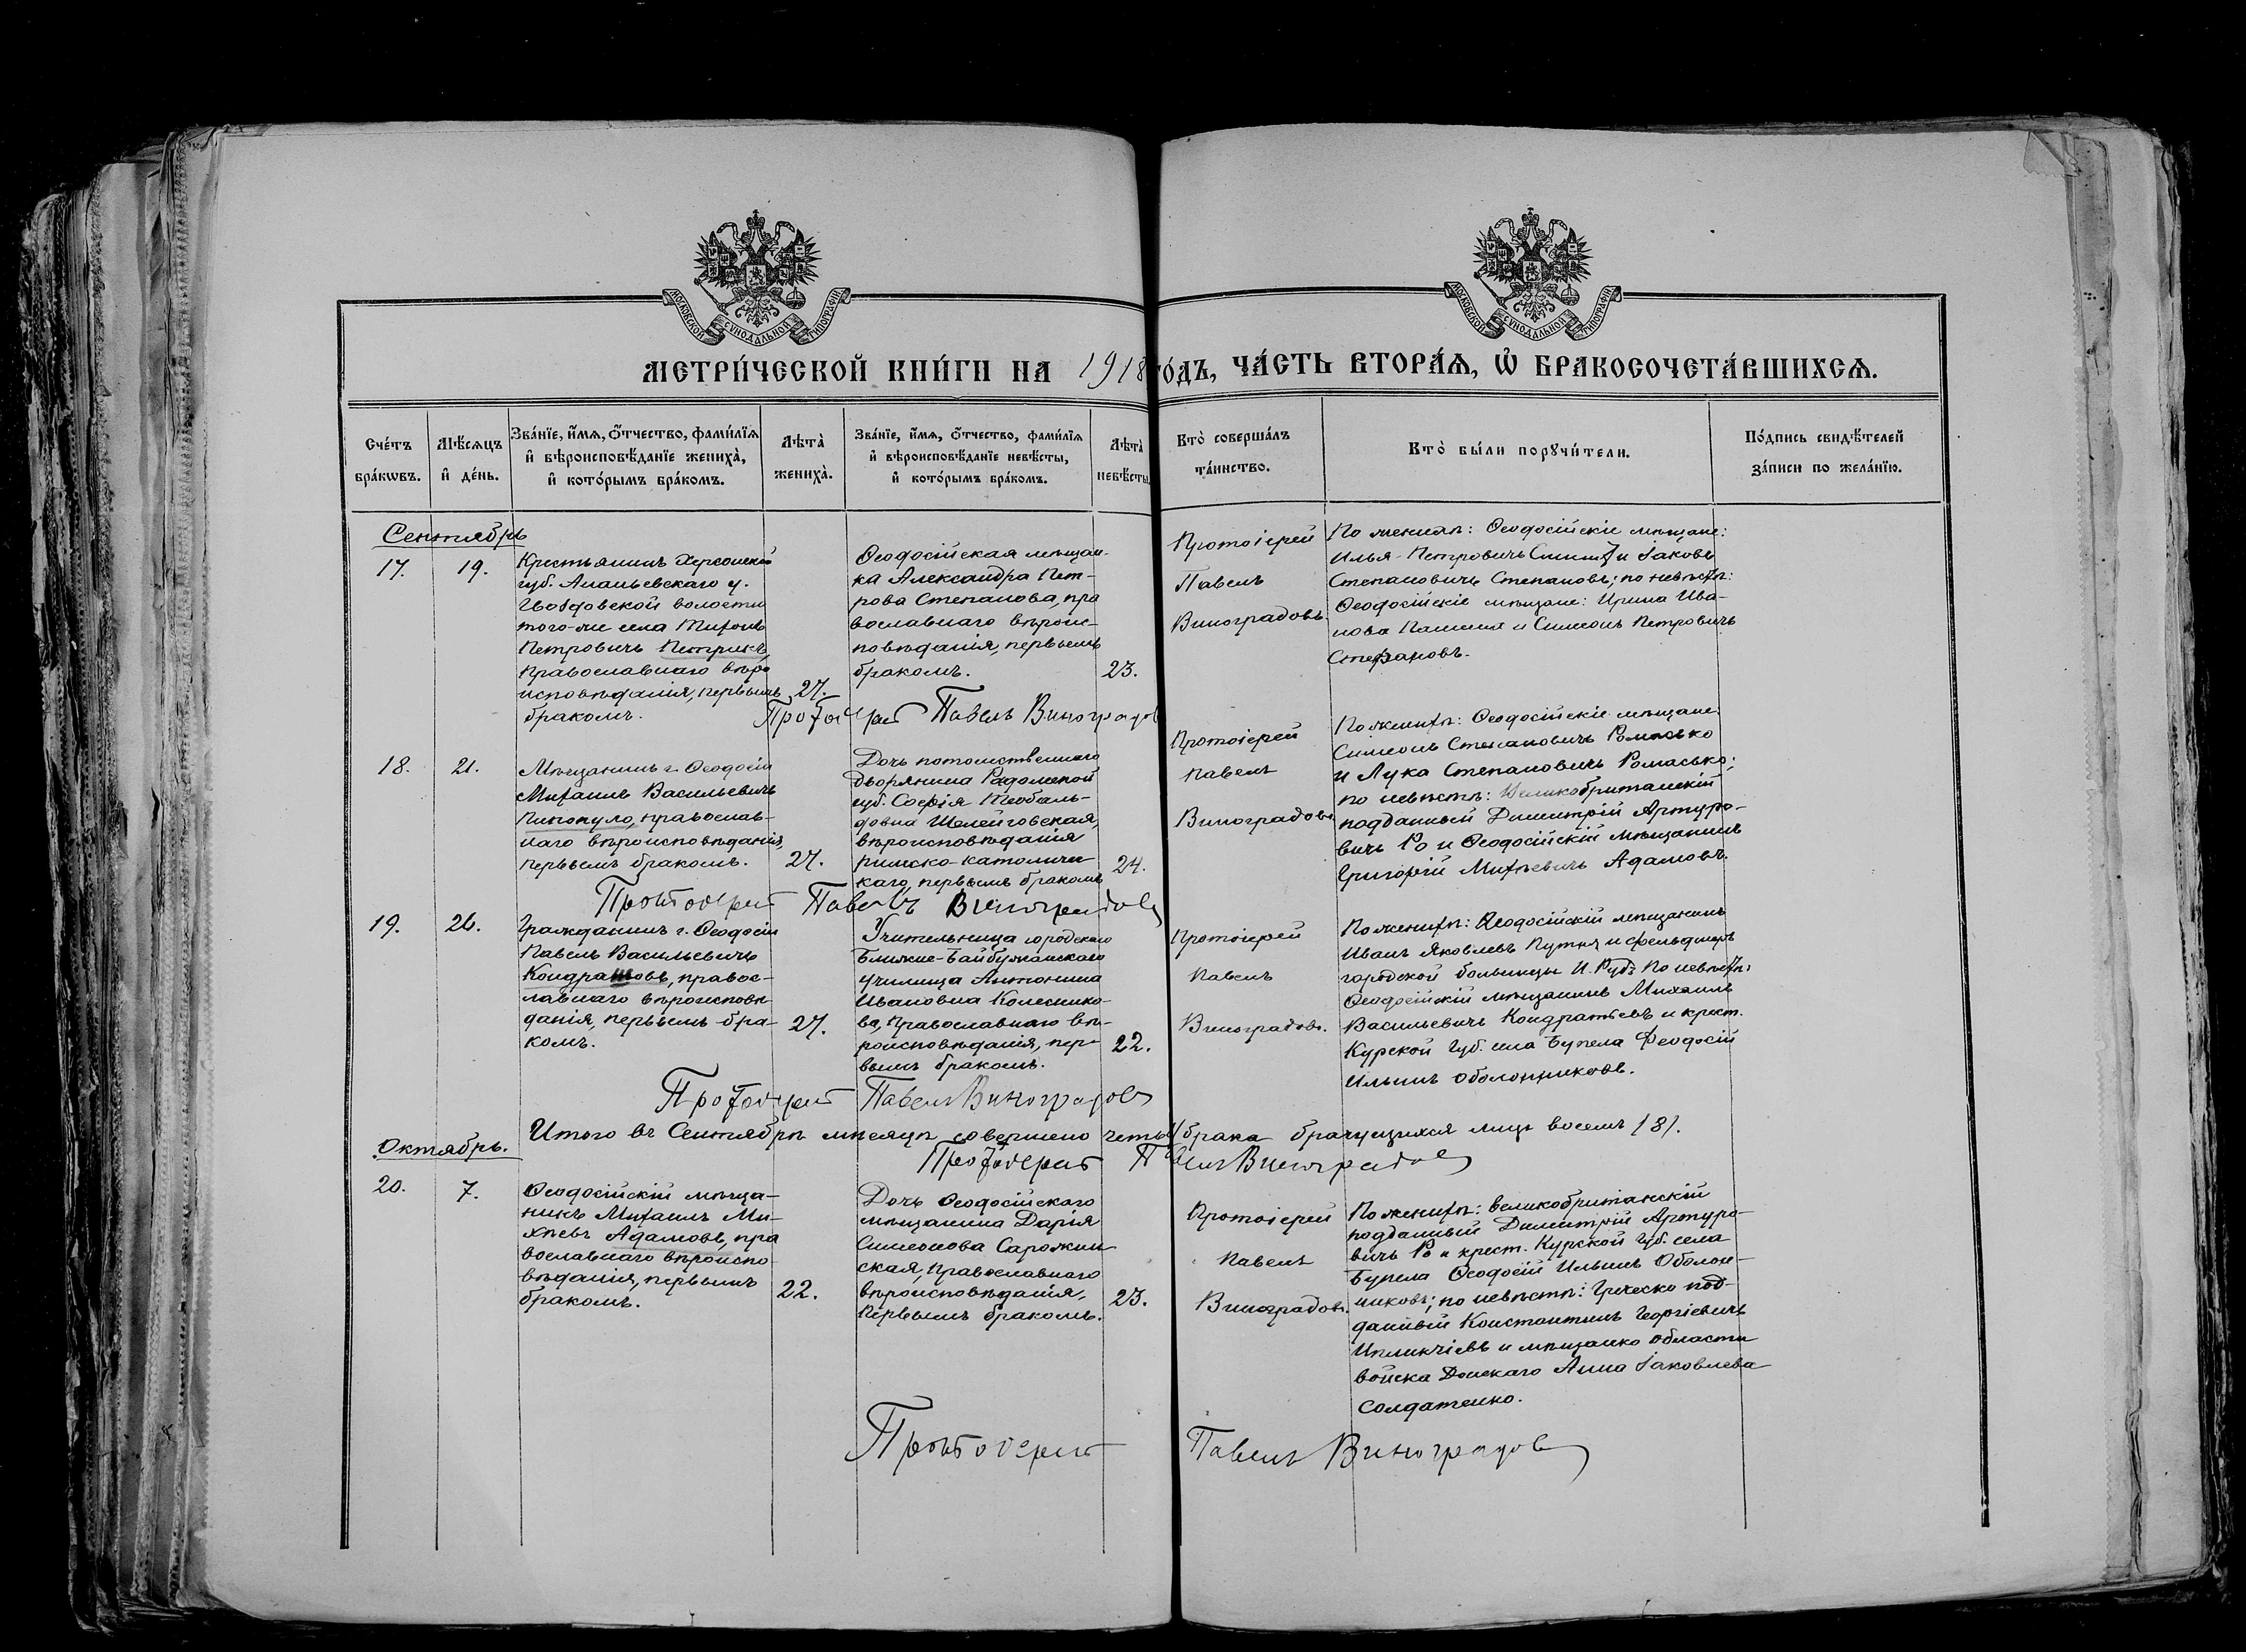 МОСКОВСКОЙ СѴНОДАЛЬНОЙ ТИПОГРАФІИ
МОСКОВСКОЙ СѴНОДАЛЬНОЙ ТИПОГРАФІИ
МЕТРИ́ЧЕСКОЙ КНИ́ГИ НА 1918 го́дъ, ЧА́СТЬ ВТОРА́Ѧ, Ѡ҆ БРАКОСОЧЕТА́ВШИХСѦ.
Сче́тъ бра́кѡвъ.
Мѣ́сѧцъ и҆ де́нь.
Зва́нїе, и҆́мѧ, ѻ҆́тчество, фами́лїѧ и҆ вѣроисповѣ́данїе жениха̀, и҆ кото́рымъ бра́комъ.
Лѣта̀ жениха̀.
Зва́нїе, и҆́мѧ, ѻ҆́тчество, фами́лїѧ и҆ вѣроисповѣ́данїе невѣ́сты, и҆ кото́рымъ бра́комъ.
Лѣта̀ невѣ́сты
Кто̀ соверша́лъ та́инство.
Кто̀ бы́ли порꙋчи́тели.
По́дпись свидѣ́телей за́писи по жела́нїю.
Сентябрь
17.
19.
Крестьянинъ Херсонской
губ. Ананьевскаго у.
Гвоздовской волости
того-же села Тихонъ
Петровичъ Петрикъ,
православнаго вѣро
исповѣданія, первымъ
бракомъ.
27.
Ѳеодосійская мѣщан-
ка Александра Пет-
рова Степанова, пра
вославнаго вѣроис-
повѣданія, первымъ
бракомъ.
23.
Протоіерей
Павелъ
Виноградовъ
По женихѣ: Ѳеодосійскіе мѣщане:
Илья Петровичъ и Іаковъ
Степановичъ Степановъ; по невѣстѣ:
Ѳеодосійскіе мѣщане: Ирина Ива-
нова и Симеонъ Петровичъ
Стефановъ.
Протоіерей Павелъ Виноградов
18.
21.
Мѣщанинъ г. Ѳеодосіи
Михаилъ Васильевичъ
Пинопуло, православ-
наго вѣроисповѣданія,
первымъ бракомъ.
27.
Дочь потомственнаго
дворянина Радомской
губ. Софія Теобаль-
довна Шелейговская,
вѣроисповѣданія
римско-католичес
каго, первымъ бракомъ
24.
Протоіерей
Павелъ
Виноградовъ
По женихѣ: Ѳеодосійскіе мѣщане
Симеонъ Степановичъ Ромасько
и Лука Степановичъ Ромасько;
по невѣстѣ: Великобританскій
подданный Димитрій Артуро-
вичъ Ро и Ѳеодосійскій мѣщанинъ
Григорій Михѣевичъ Адамовъ.
Протоіерей Павелъ Виноградовъ
19.
26.
Гражданинъ г. Ѳеодосіи
Павелъ Васильевичъ
правос-
лавнаго вѣроисповѣ-
данія, первымъ бра-
комъ.
27.
Учительница городского
Ближне-Байбугскаго
училища Антонина
Ивановна Колеснико-
ва, православнаго вѣ-
роисповѣданія, пер-
вымъ бракомъ.
22.
Протоіерей
Павелъ
Виноградовъ.
По женихѣ: Ѳеодосійскій мѣщанинъ
Иванъ Яковлевъ и фельдшеръ
городской больницы И. По невѣстѣ:
Ѳеодосійскій мѣщанинъ Михаилъ
Васильевичъ Кондратьевъ и крест.
Курской губ. села Бупела Феодосій
Ильинъ Оболонниковъ.
Протоіерей Павелъ Виноградовъ
Итого въ Сентябрѣ мѣсяцѣ совершено четыр брака брачущихся лицъ восемь (8).
Протоіерей Павелъ Виноградовъ
Октябрь.
20.
7.
Ѳеодосійскій мѣща-
нинъ Михаилъ Ми-
хѣевъ Адамовъ, пра
вославнаго вѣроиспо
вѣданія, первымъ
бракомъ.
22.
Дочь Ѳеодосійскаго
мѣщанина Дарія
Симеонова Сарожин
ская, православнаго
вѣроисповѣданія,
первымъ бракомъ.
23.
Протоіерей
Павелъ
Виноградовъ.
По женихѣ: великобританскій
подданный Димитрій Артуро-
вичъ Ро и крест. Курской губ. села
Бупела Ѳеодосій Ильинъ Оболон-
никовъ; по невѣстѣ: Греческо под-
данный Константинъ Георгіевичъ
и мѣщанка области
войска Донскаго Анна Іаковлева
Солдатенко.
Протоіерей Павелъ Виноградовъ